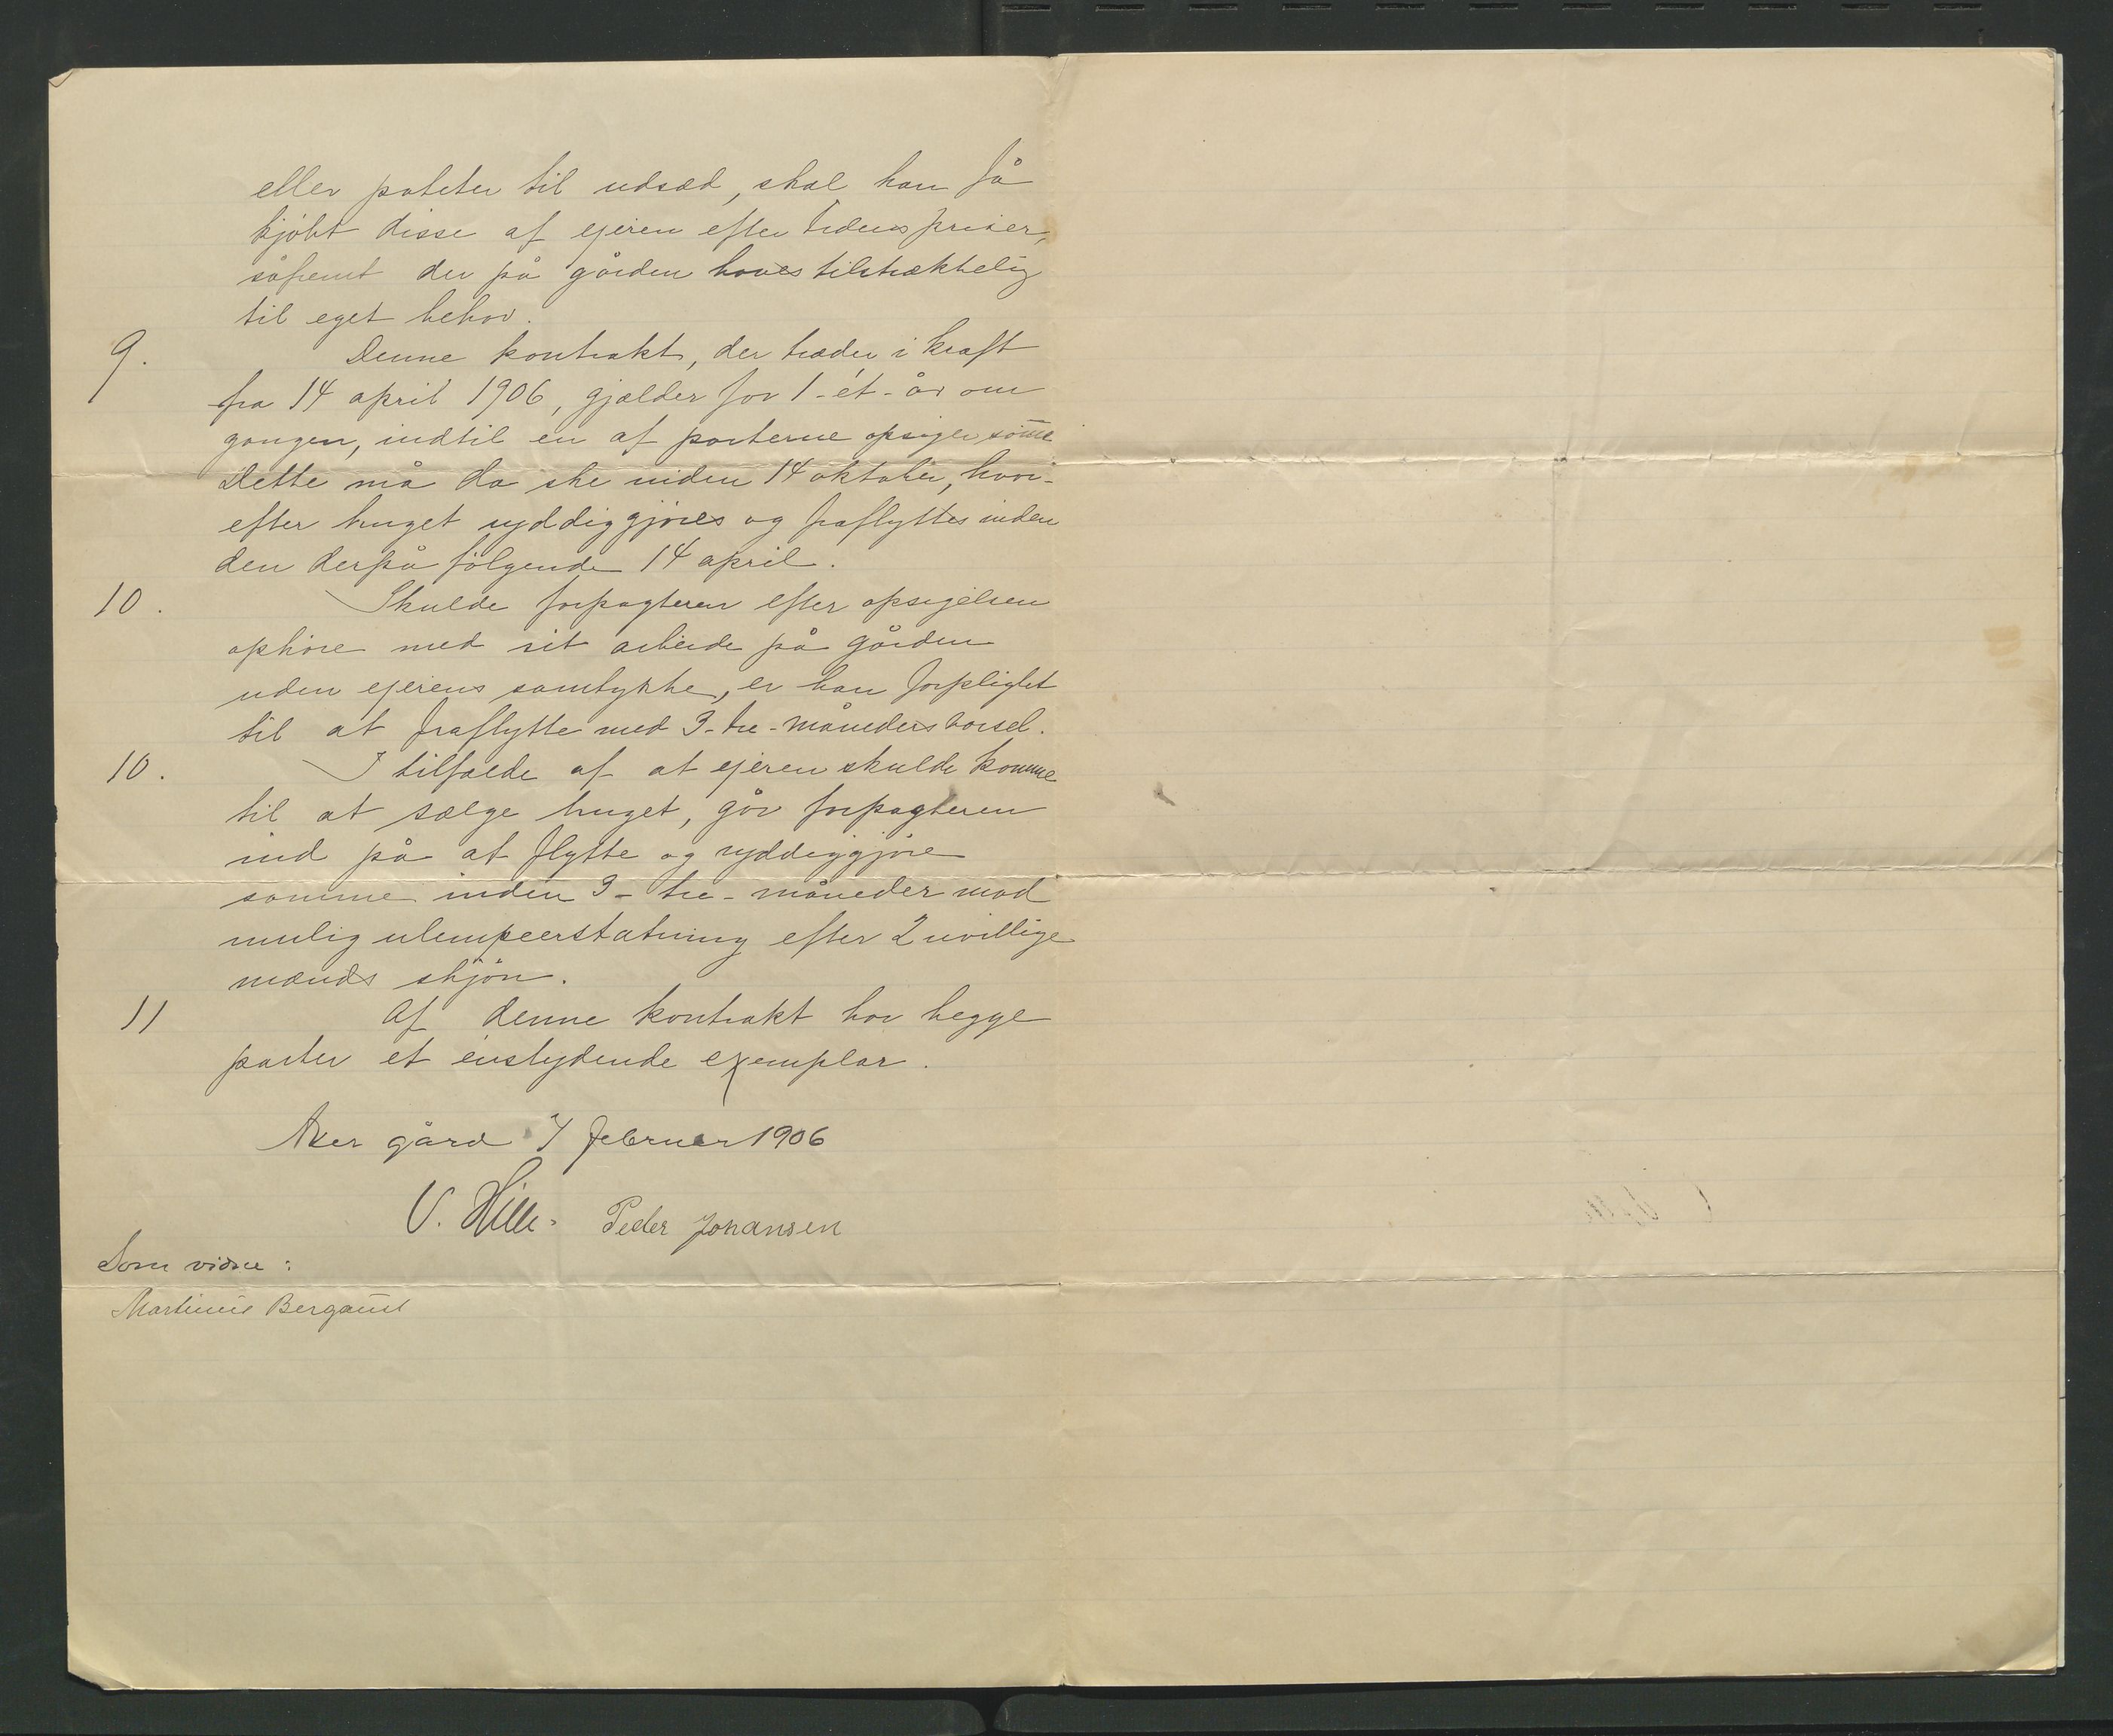 eller poteter til udsæd, skal han få
kjøbt disse af ejeren efter tidens priser,
såfremt der på gården haves tilstrækkelig
til eget behov.
9. Denne kontrakt, der træder i kraft
fra 14 april 1906, gjælder for 1-ét-år om
gangen, indtil en af parterne opsiger samme
Dette må da ske inden 14 oktober, hvor-
efter bruget ryddiggjøres og fraflyttes inden
den derpå følgende 14 april.
10. Skulde forpagteren efter opsigelsen
ophøre med sit arbeide på gården
uden ejerens samtykke, er han forpligtet
til at fraflytte med 3-tre-måneders varsel.
10. I tilfælde af at ejeren skulde komme
til at sælge bruget, går forpagteren
ind på at flytte og ryddiggjøre
samme inden 3-tre-måneder mod
mulig ulempeerstatning efter 2 uvillige
mænds skjøn.
11 Af denne kontrakt har begge
parter et enslydende exemplar.
Aker gård 7 februar 1906
V. Hille. Peder Johansen
Som vidne:
Martinus